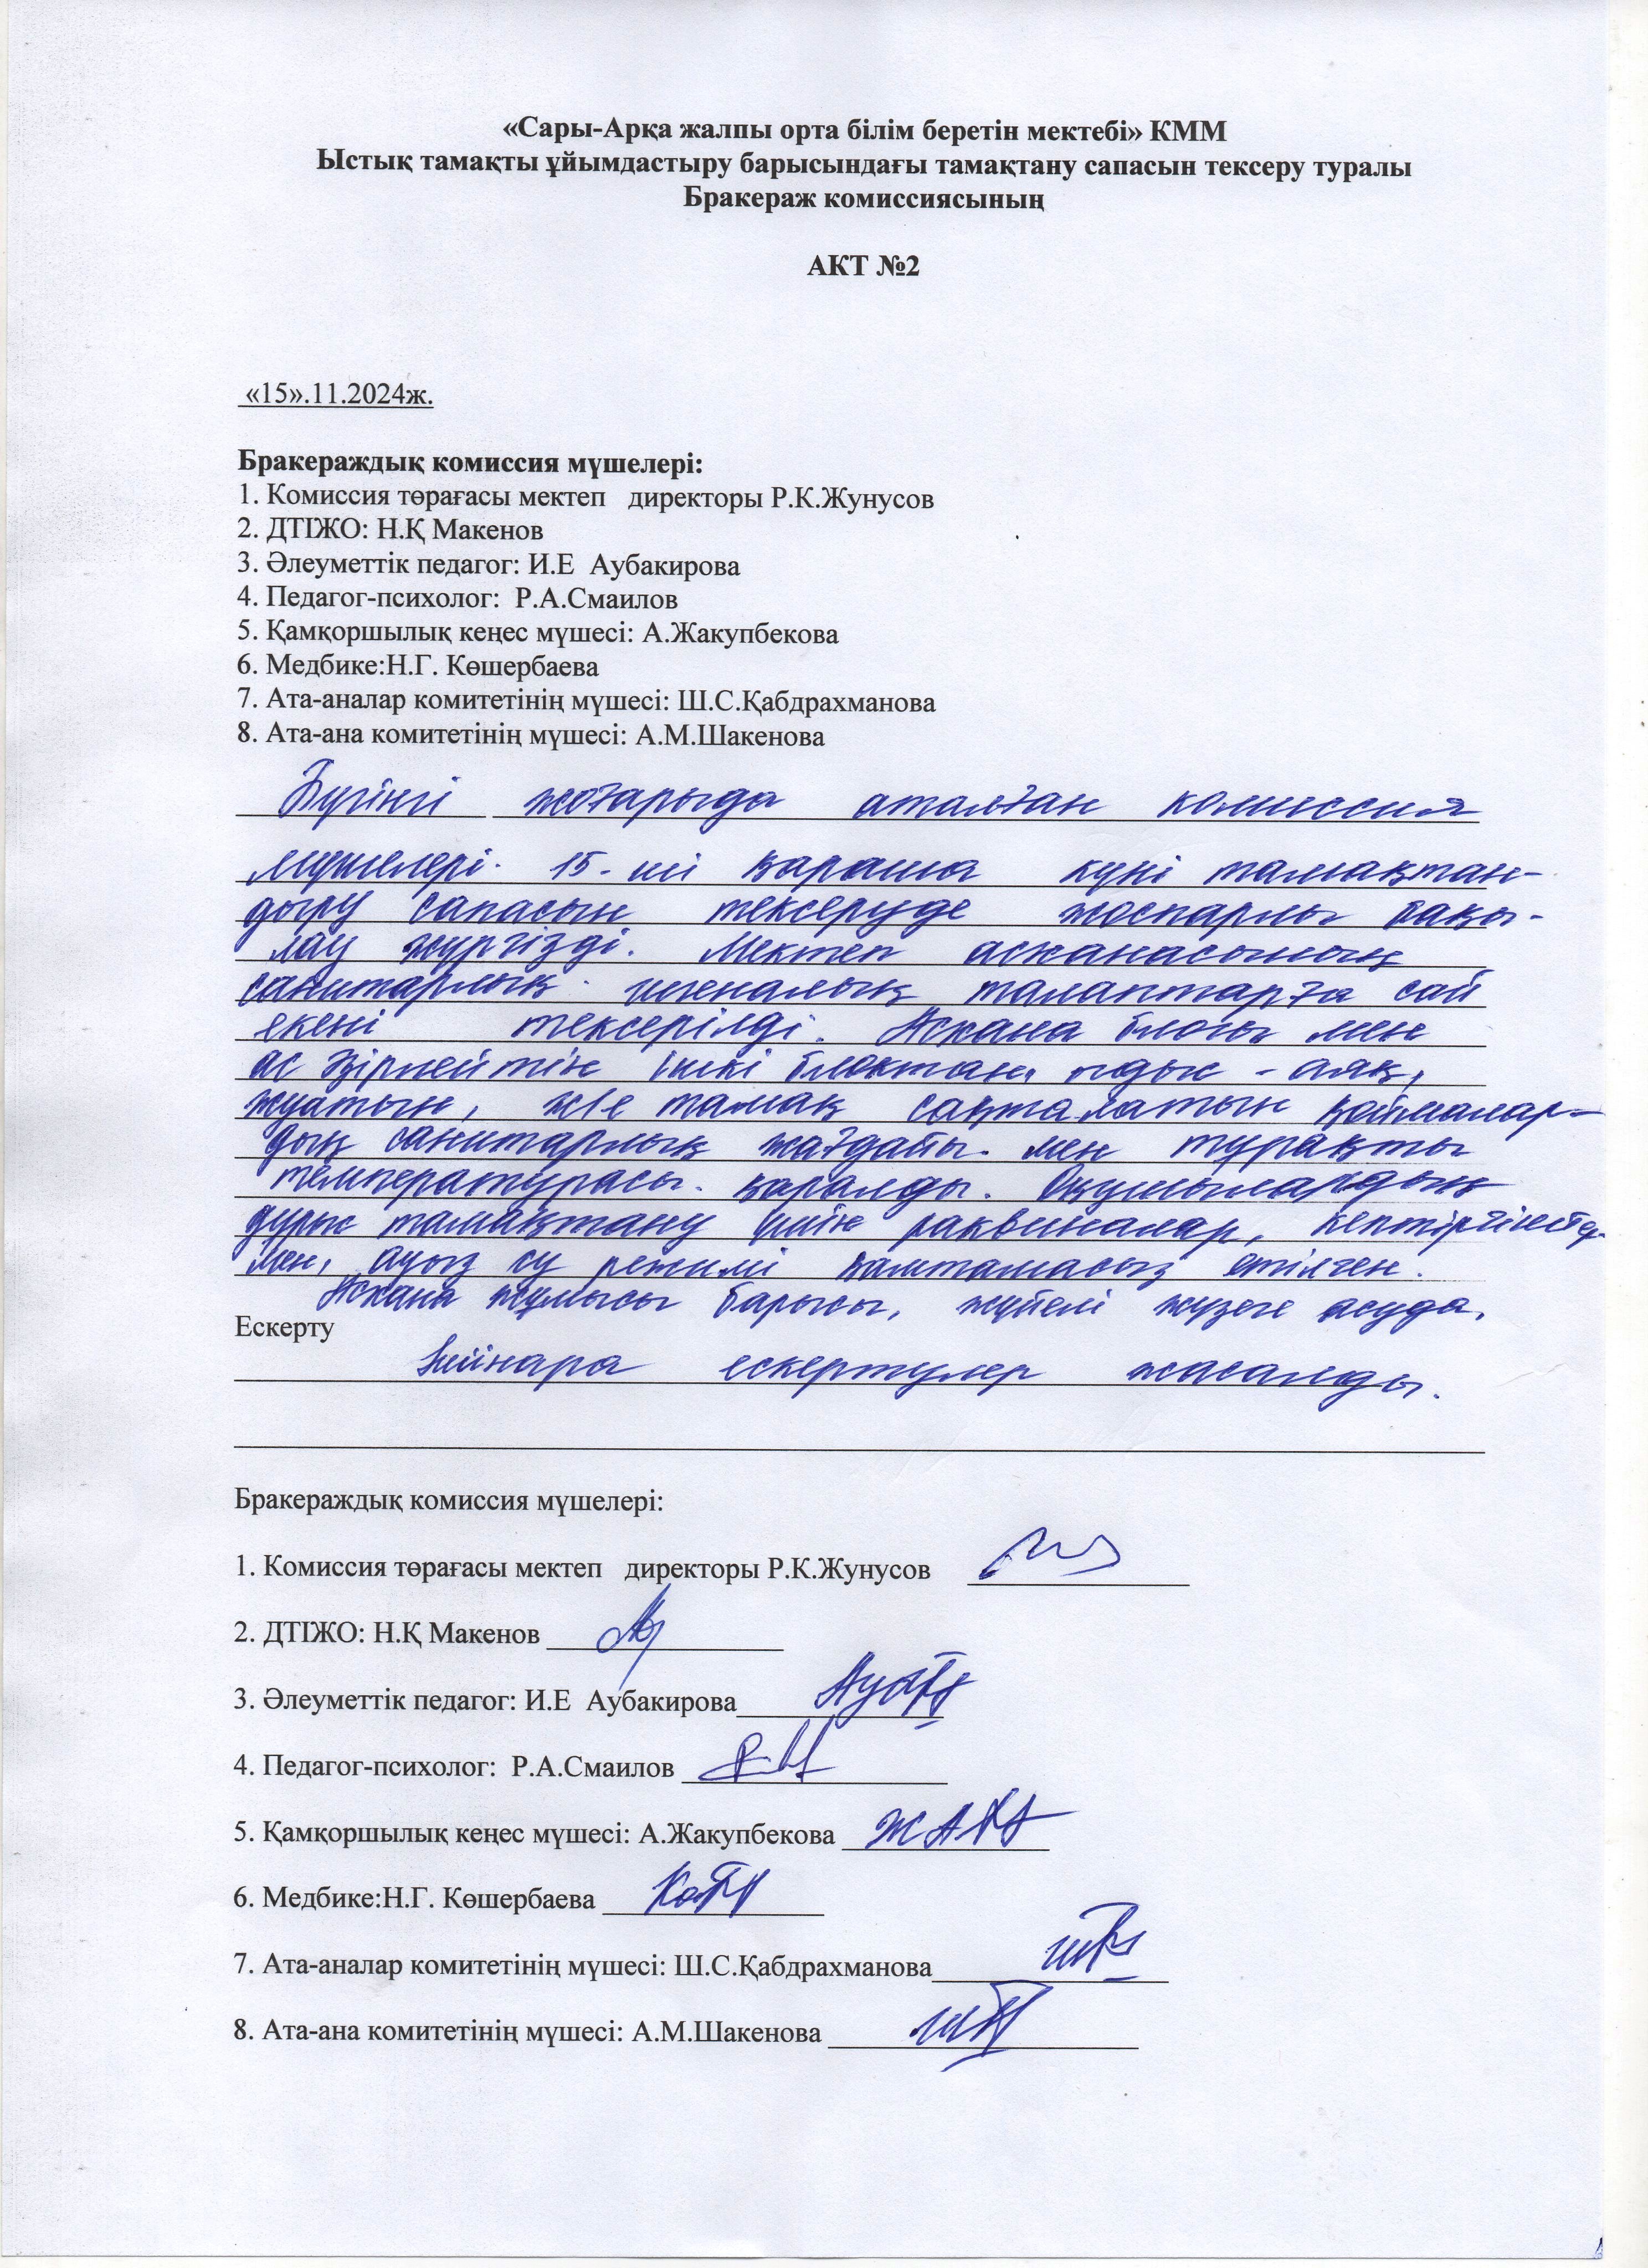 «Сары-Арқа жалпы орта білім беретін мектебі» КММ
Ыстық тамақты ұйымдастыру барысындағы тамақтану сапасын тексеру туралы
Бракераж комиссиясының
АКТ №2
«15».11.2024ж.
Бракераждық комиссия мүшелері:
1. Комиссия төрағасы мектеп директоры Р.К.Жунусов
2. ДТІЖО: Н.Қ Макенов
3. Әлеуметтік педагог: И.Е Аубакирова
4. Педагог-психолог: Р.А.Смаилов
5. Қамқоршылық кеңес мүшесі: А.Жакупбекова
6. Медбике:Н.Г. Көшербаева
7. Ата-аналар комитетінің мүшесі: Ш.С.Қабдрахманова
8. Ата-ана комитетінің мүшесі: А.М.Шакенова
Бүгінгі жоғарыда аталған комиссия
мүшелері 15-ші қараша күні тамақтан-
дыру сапасын тексеруде жоспарлы бақы-
лау жүргізді. Мектеп асханасының
санитарлық талаптарға сай
екені тексерілді. Асхана блогы мен
ас әзірлейтін ішкі ыдыс-аяқ,
жуатын, ж/е тамақ сақталатын қоймалар-
дың санитарлық жағдайы мен тұрақты
температурасы қаралды. Оқушылардың
дұрыс тамақтану үшін раквиналар,
мен, ауыз су режимі қамтамасыз етілген.
Асхана жұмысы барысы, жүйелі жүзеге асуда.
Ескерту
ескертулер жасалды.
Бракераждық комиссия мүшелері:
1. Комиссия төрағасы мектеп директоры Р.К.Жунусов
2. ДТІЖО: Н.Қ Макенов
3. Әлеуметтік педагог: И.Е Аубакирова
4. Педагог-психолог: Р.А.Смаилов
5. Қамқоршылық кеңес мүшесі: А.Жакупбекова
6. Медбике:Н.Г. Көшербаева
7. Ата-аналар комитетінің мүшесі: Ш.С.Қабдрахманова
8. Ата-ана комитетінің мүшесі: А.М.Шакенова